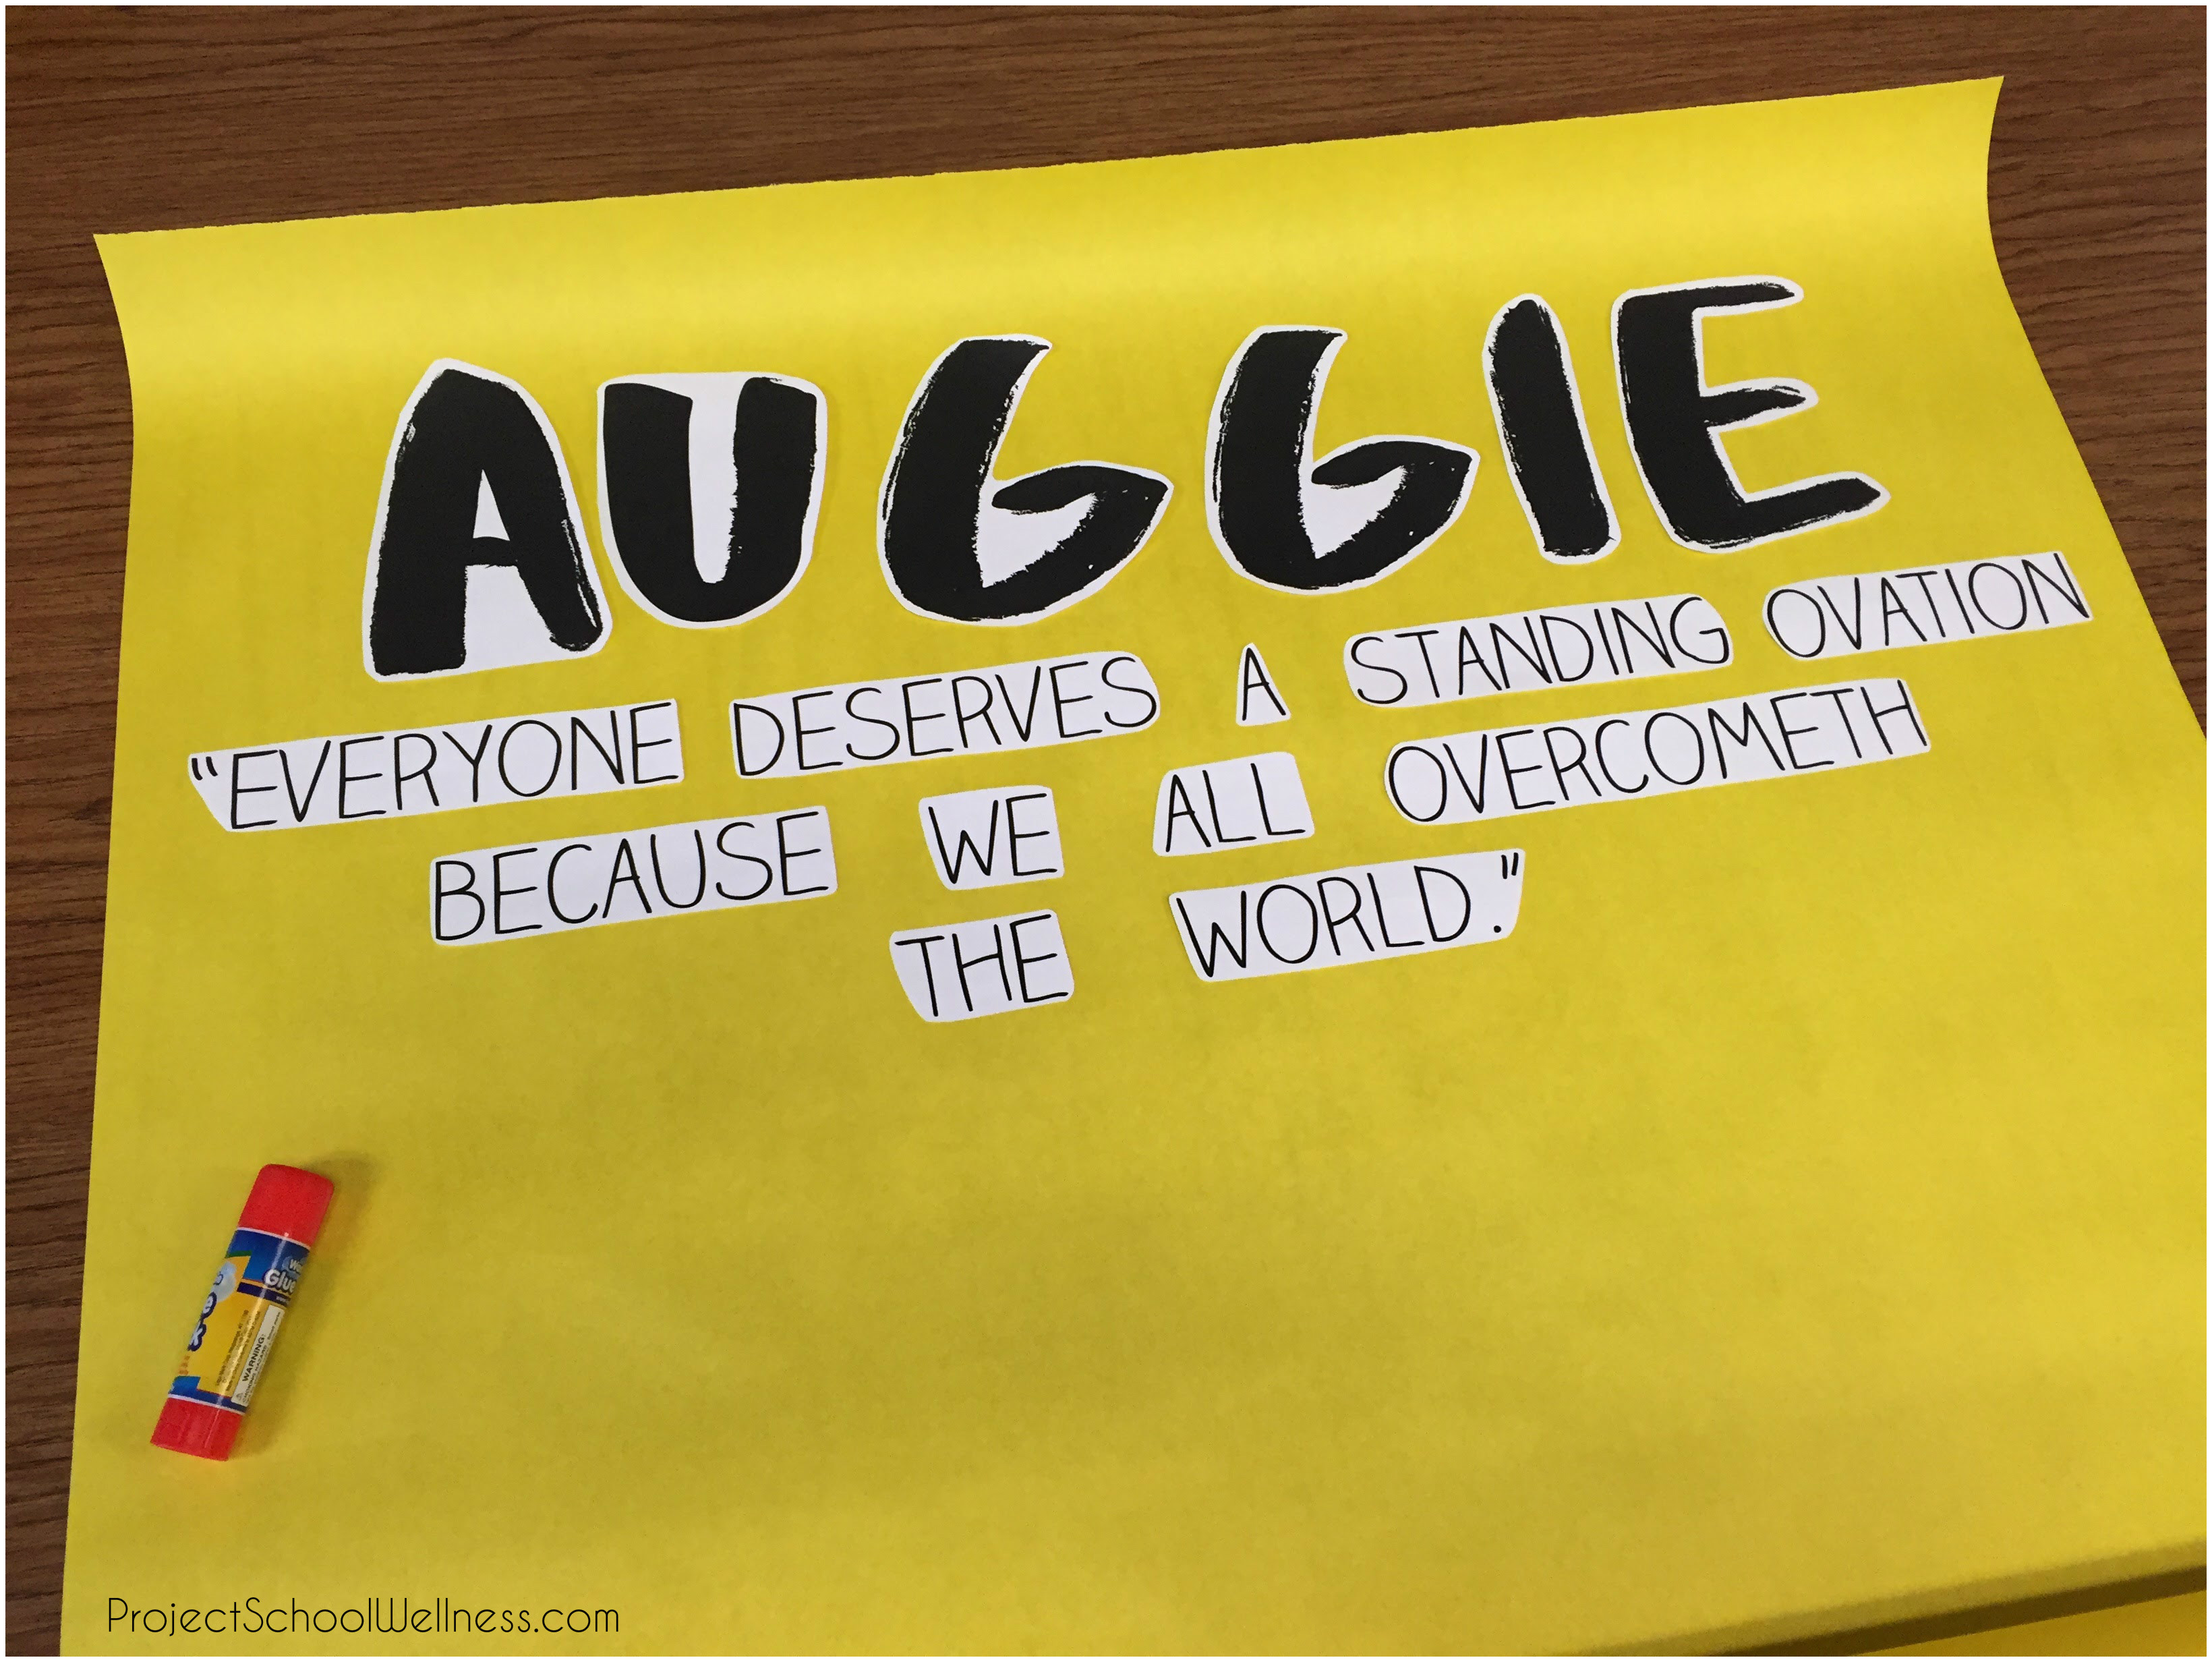 AUGGIE
"EVERYONE DESERVES A STANDING OVATION
BECAUSE WE ALL OVERCOMETH
THE WORLD."
Glue
WARNING:
ProjectSchoolWellness.com